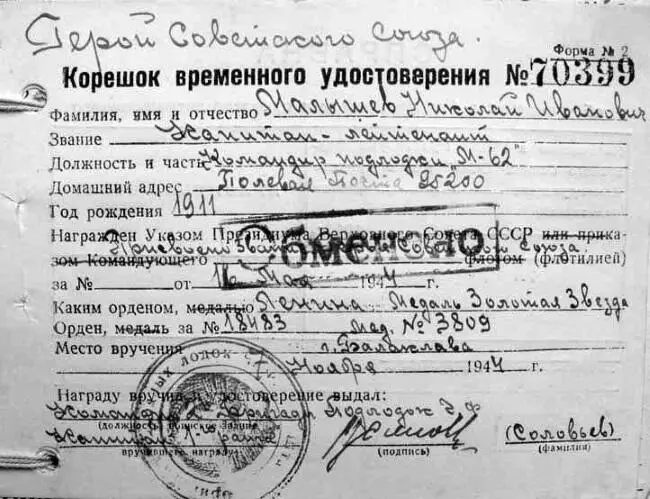 Герой Советского Союза.
Форма № 2
Корешок временного удостоверения № 70399
Фамилия, имя и отчество Малышев Николай Иванович
Звание Капитан-лейтенант
Должность и часть Командир подлодки "М-62"
Домашний адрес Полевая Почта 25200
Год рождения 1911
Награжден Указом Президиума Верховного Совета СССР или прика-
Присвоено звание Советского Союза.
зом Командующего флотом (флотилией)
ОБМЕНЕНО
за № от 16 Мая 1944 г.
Каким орденом, медалью Ленина Медаль Золотая Звезда
Орден, медаль за № 18483 Мед. № 3809
Место вручения г. Балаклава
Ноября 1944 г.
Награду вручил и удостоверение выдал:
Подлодок ЧФ
(должность, воинское звание
Капитан 1 ранга (Соловьев)
вручившего награду) (подпись) (фамилия)
ных лодок